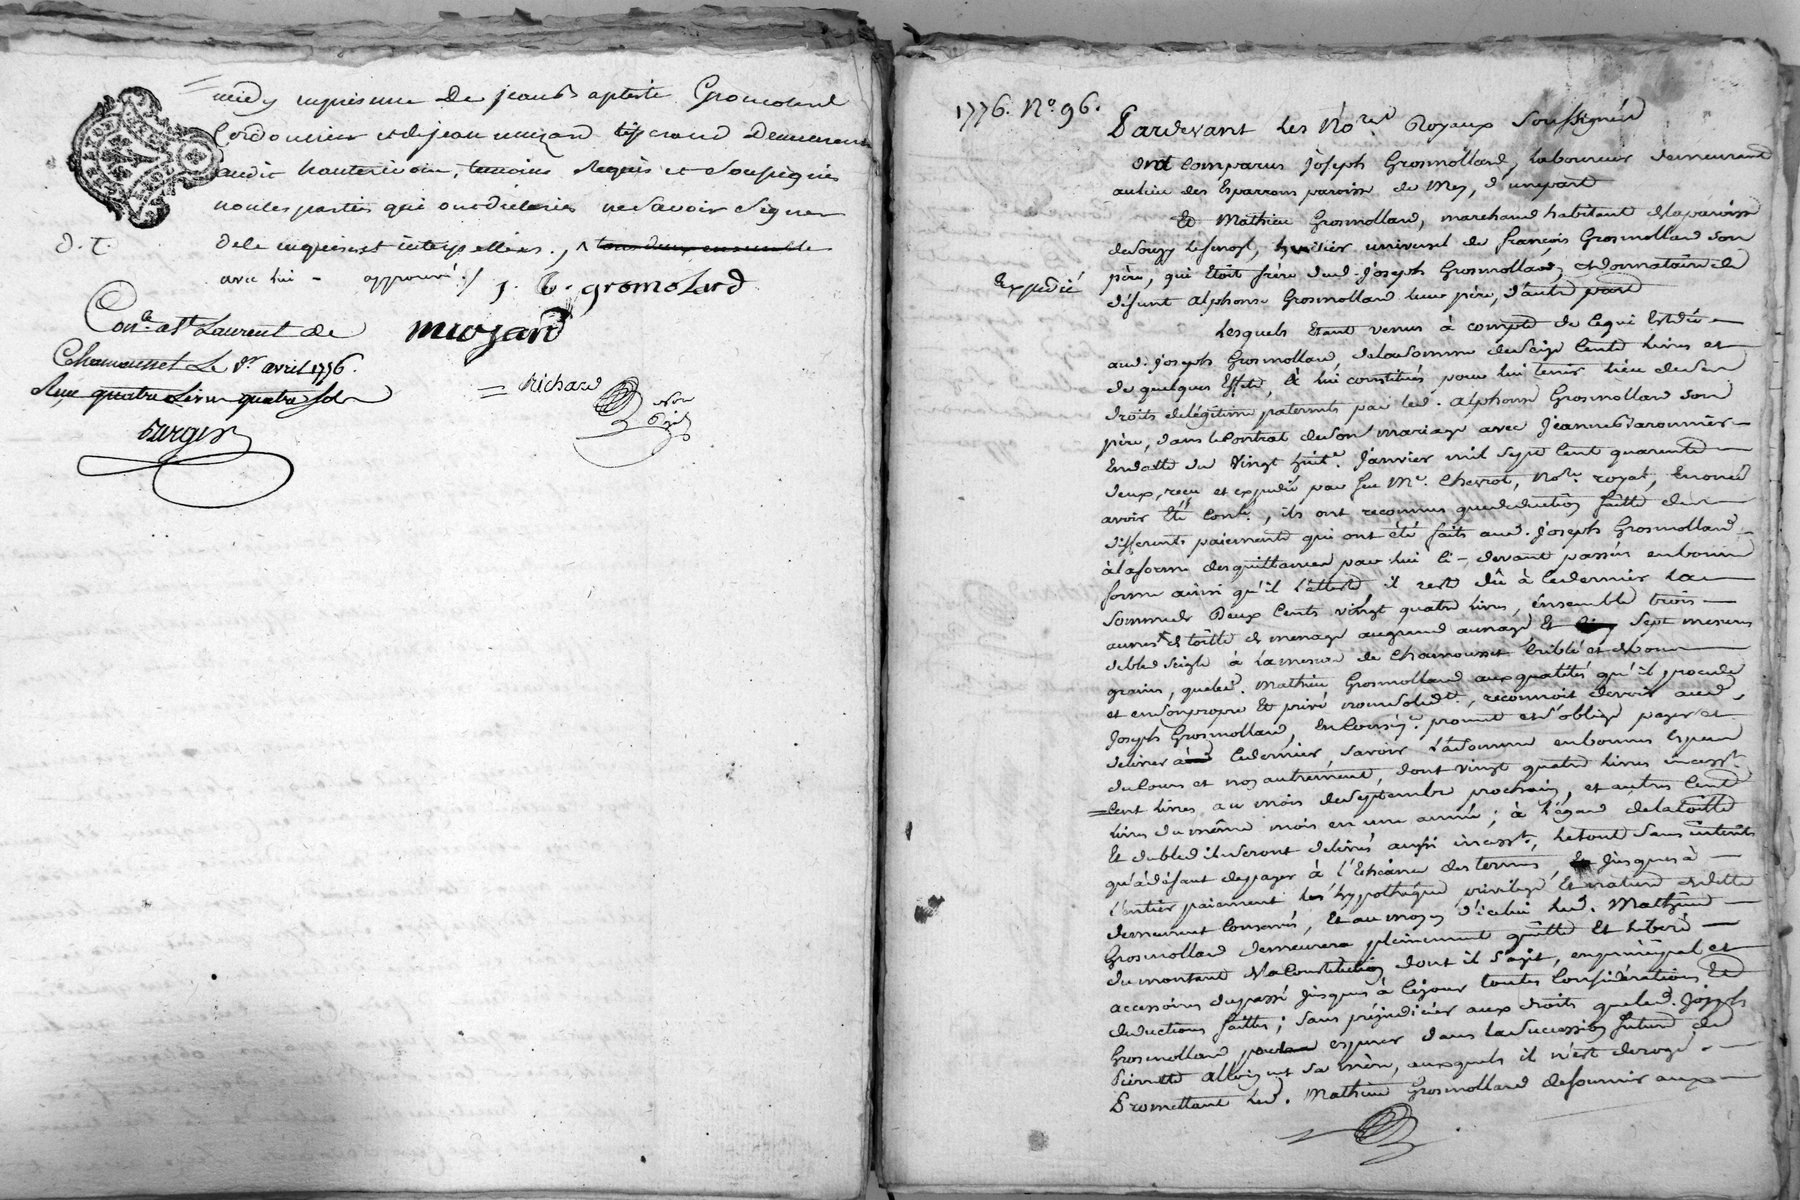 midy en présence de jean baptiste Gromolard
Cordonnier et de jean muzard tisserand demeurant
audit hauterivoire, temoins requis et soussignés
non les parties qui ont declarées ne savoir signer
de ce enquises et interpellées. / tous deux ensemble
D. T.
avec lui - approuvé ./
j. B. gromolard
muzard
Richard
Con.lé a St Laurent de
Chamousset Le 8r avril 1776.
Reçu quatre Livres quatre sols
1776. No. 96.
Expedié
Pardevant les No.res Royaux Soussignés
ont comparus Joseph Grosmolland, laboureur demeurant
au lieu des Esparrons paroisse de Mey, d'une part
Et Mathieu Grosmolland, marchand habitant de la paroisse
de Souzy, héritier universel de françois Grosmolland son
père, qui étoit frère dud. Joseph Grosmolland, et donnataire de
défunt Alphonse Grosmolland leur père, d'autre part
Lesquels étant venus à compte de ce qui est dû
aud. Joseph Grosmolland de la somme de seize Cents livres et
de quelques effets, à lui constitués pour lui tenir lieu de ses
droits de légitime paternels par led. Alphonse Grosmolland son
père, dans le contrat de son mariage avec Jeanne
en datte du vingt huite. Janvier mil sept cent quarante
deux, reçu et expedié par feu Me. Chevrot, No.re royal, énoncé
avoir été Conlé., ils ont reconnus que déduction faitte des
differents paiements qui ont été faits aud. Joseph Grosmolland
à la forme des quittances par lui ci-devant passées en bonne
forme ainsi qu'il l'atteste il reste dû à ce dernier la
somme de Deux Cents vingt quatre livres, ensemble trois
aunes de toille de menage au grand aunage et sept mesures
de bled seigle à la mesure de Chamousset criblé et de bon
grain, que led. Mathieu Grosmolland aux qualités qu'il procede
et en son propre et privé nom solid.t, reconnoit devoir aud.
Joseph Grosmolland, En Conséq.ce promet et s'oblige payer et
delivrer à ce dernier, savoir lad. somme en bonnes Especes
du Cours et non autrement, dont vingt quatre livres incess.t
Cent livres au mois de Septembre prochain, et autres Cent
livres du même mois en une année; à l'égard de la toille
et du bled ils seront delivrés aussi incess.t, le tout sans intérêts
qu'à défaut de payer à l'Echéance des termes jusques à
l'entier paiement les hypothéque privilege et nature de dette
demeurent conservés, Et au moyen d'icelui led. Mathieu
Grosmolland demeurera pleinement quitte et liberé
du montant de la Constitution dont il s'agit, en principal et
accessoires du passé jusques à ce jour toutes Considérations et
deductions faittes; sans préjudicier aux droits que led. Joseph
Grosmolland, espérer dans la succession future de
sa mère, auxquels il n'est derogé.
Promettant led. Mathieu Grosmolland de fournir aux